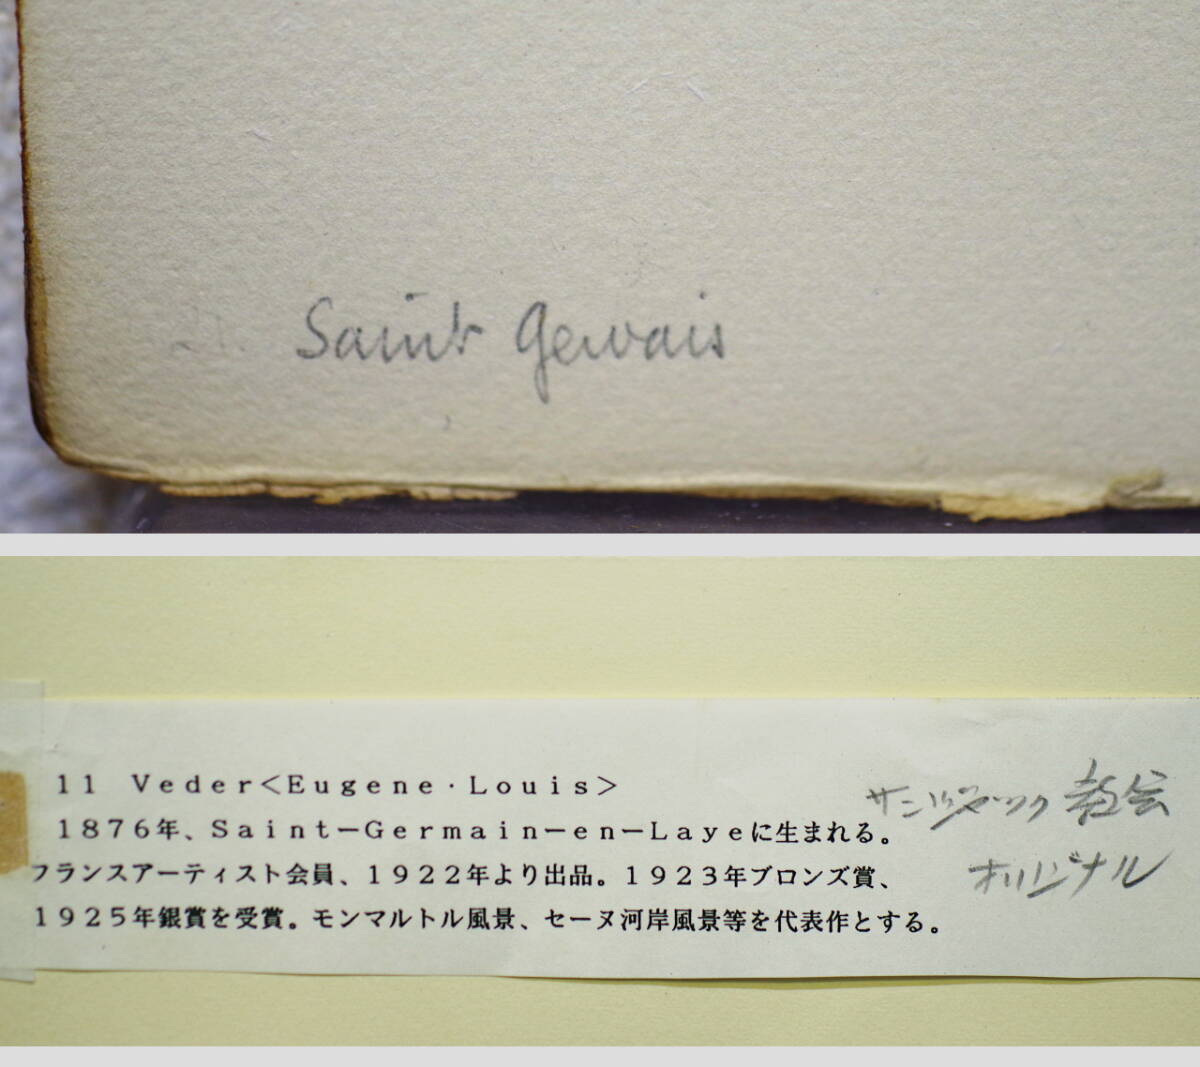 Saint Gervais
11 Veder<Eugene・Louis>
1876年、Saint－Germain－en－Layeに生まれる。
フランスアーティスト会員、1922年より出品。1923年ブロンズ賞、
1925年銀賞を受賞。モンマルトル風景、セーヌ河岸風景等を代表作とする。
教会
オリジナル